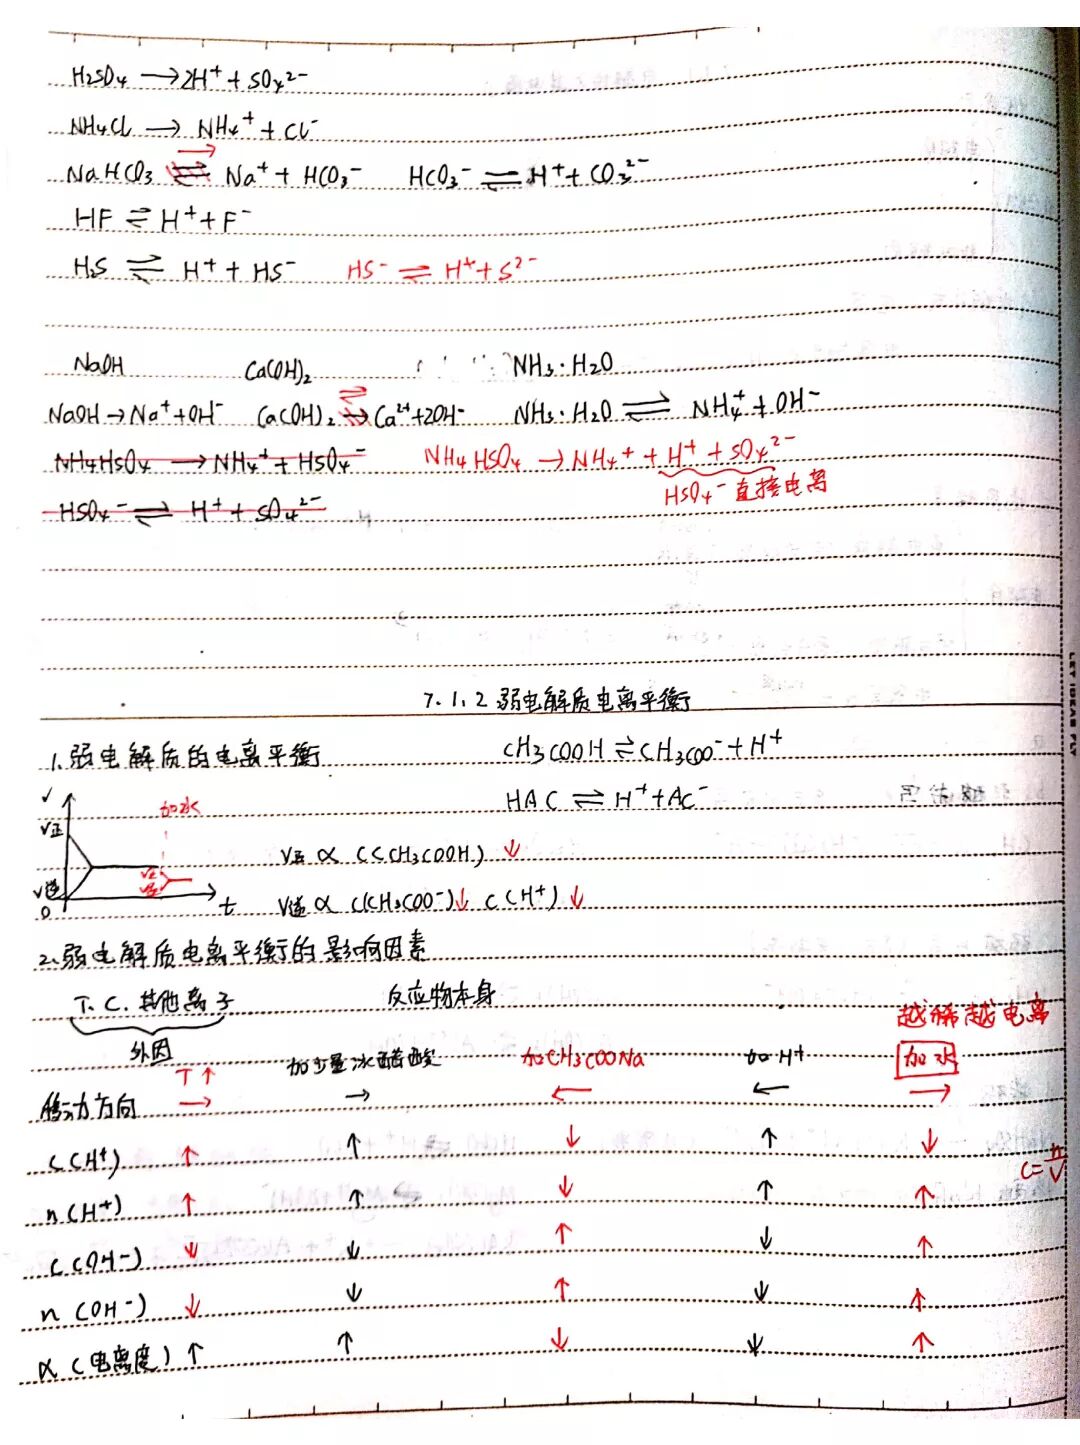 H2SO4 → 2H⁺ + SO4²⁻
NH4Cl → NH4⁺ + Cl⁻
→
NaHCO3 ⇌ Na⁺ + HCO3⁻ HCO3⁻ ⇌ H⁺ + CO3²⁻
HF ⇌ H⁺ + F⁻
H2S ⇌ H⁺ + HS⁻ HS⁻ ⇌ H⁺ + S²⁻
NaOH Ca(OH)2 NH3·H2O
⇌
NaOH → Na⁺ + OH⁻ Ca(OH)2 → Ca²⁺ + 2OH⁻ NH3·H2O ⇌ NH4⁺ + OH⁻
NH4HSO4 → NH4⁺ + HSO4⁻ NH4HSO4 → NH4⁺ + H⁺ + SO4²⁻
HSO4⁻ 直接电离
HSO4⁻ ⇌ H⁺ + SO4²⁻
LET IDEAS FLY
7.1.2 弱电解质电离平衡
1.弱电解质的电离平衡 CH3COOH ⇌ CH3COO⁻ + H⁺
HAC ⇌ H⁺ + Ac⁻
V 加水
V正
V正 ∝ C(CH3COOH) ↓
V正
V逆
V逆 0 t V逆 ∝ C(CH3COO⁻)↓ C(H⁺) ↓
2.弱电解质电离平衡的影响因素
T.C.其他离子 反应物本身
越稀越电离
外因 T↑ 加少量冰醋酸 加CH3COONa 加H⁺ 加水
移动方向 → → ← ← →
C(H⁺) ↑ ↑ ↓ ↑ ↓ C=n/V
n(H⁺) ↑ ↑ ↓ ↑ ↑
C(OH⁻) ↓ ↓ ↑ ↓ ↑
n(OH⁻) ↓ ↓ ↑ ↓ ↑
α(电离度) ↑ ↑ ↓ ↓ ↑